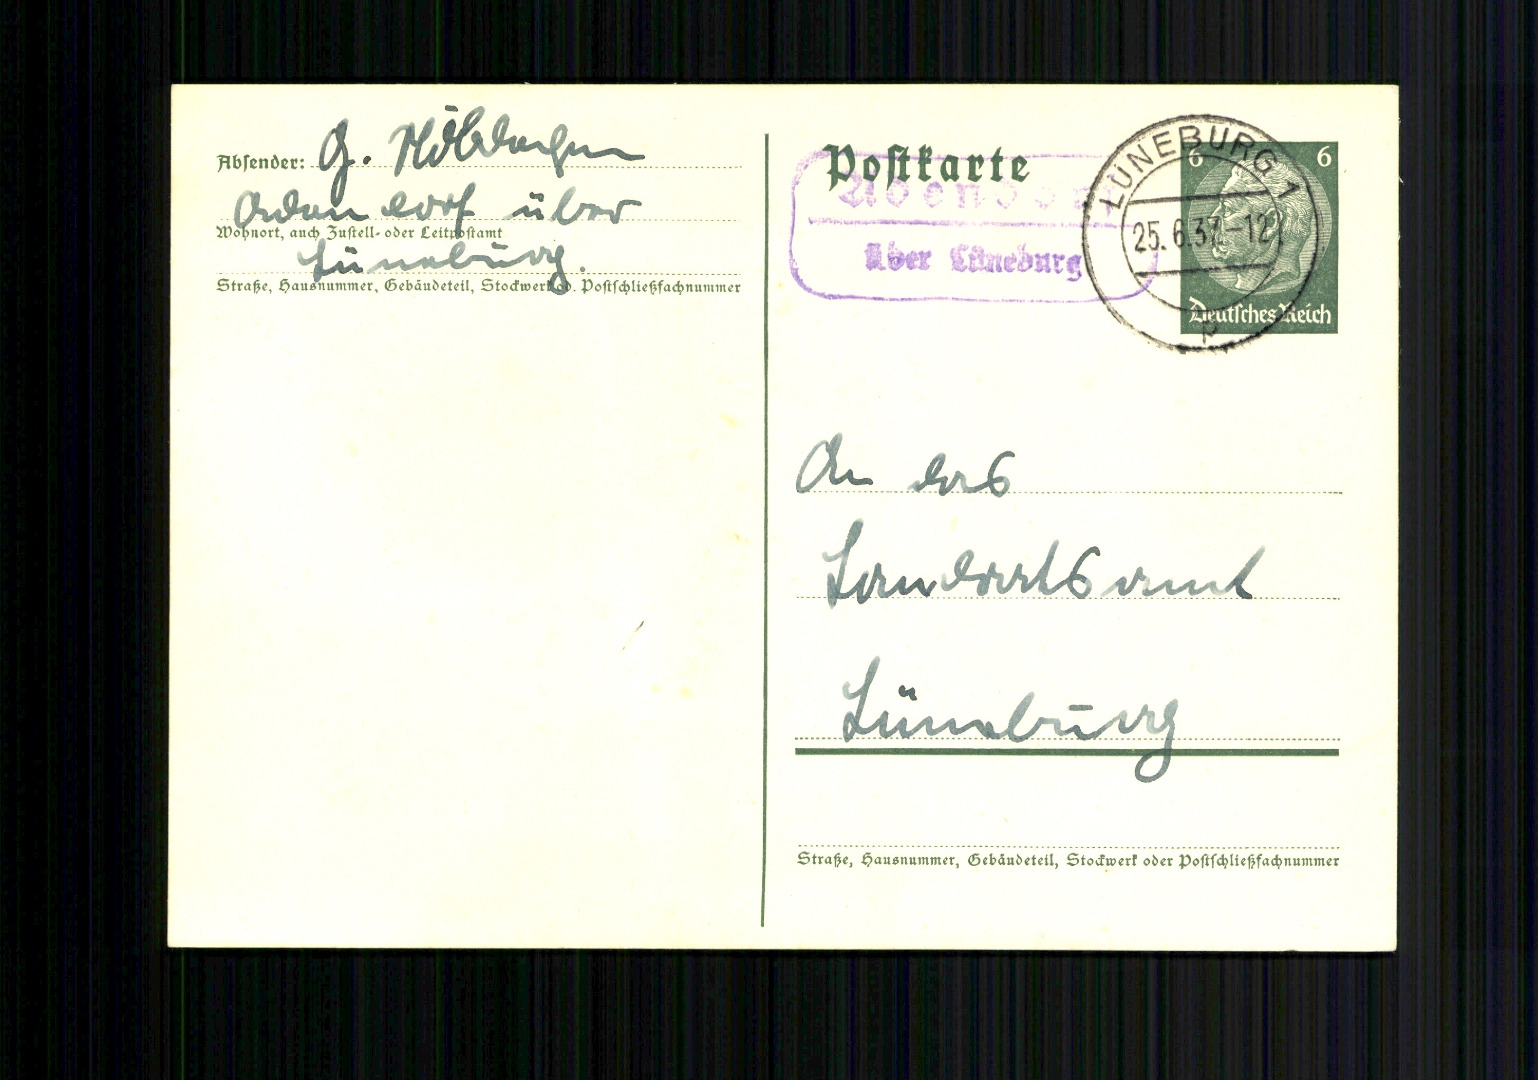 Absender: G.
Adendorf über
Wohnort, auch Zustell- oder Leitpostamt
Lüneburg.
Straße, Hausnummer, Gebäudeteil, Stockwerk od. Postschließfachnummer
Postkarte
über Lüneburg
LÜNEBURG 1
25.6.37.-12
p
6 6
Deutsches Reich
An das
Landratsamt
Lüneburg
Straße, Hausnummer, Gebäudeteil, Stockwerk oder Postschließfachnummer